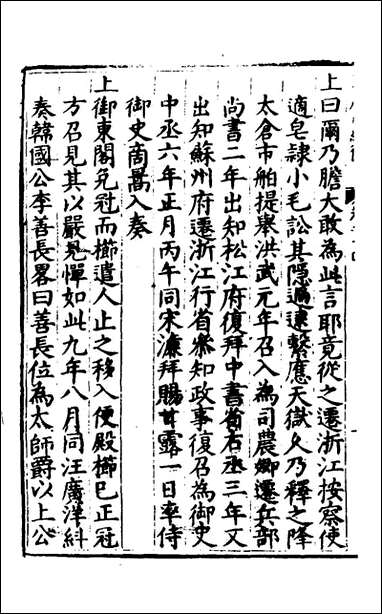 上曰爾乃膽大敢為此言耶竟從之遷浙江按察使
適皂隸小毛訟其隱過逮繫應天獄久乃釋之降
太倉市舶提舉洪武元年召入為司農卿遷兵部
尚書二年出知松江府復拜中書省右丞三年又
出知蘇州府遷浙江行省叅知政事復召為御史
中丞六年正月丙午同宋濂拜賜甘露一日率侍
御史商暠入奏
上御東閣免冠而櫛遣人止之移入便殿櫛巳正冠
方召見其以嚴見憚如此九年八月同汪廣洋糾
奏韓國公李善長畧曰善長位為太師爵以上公